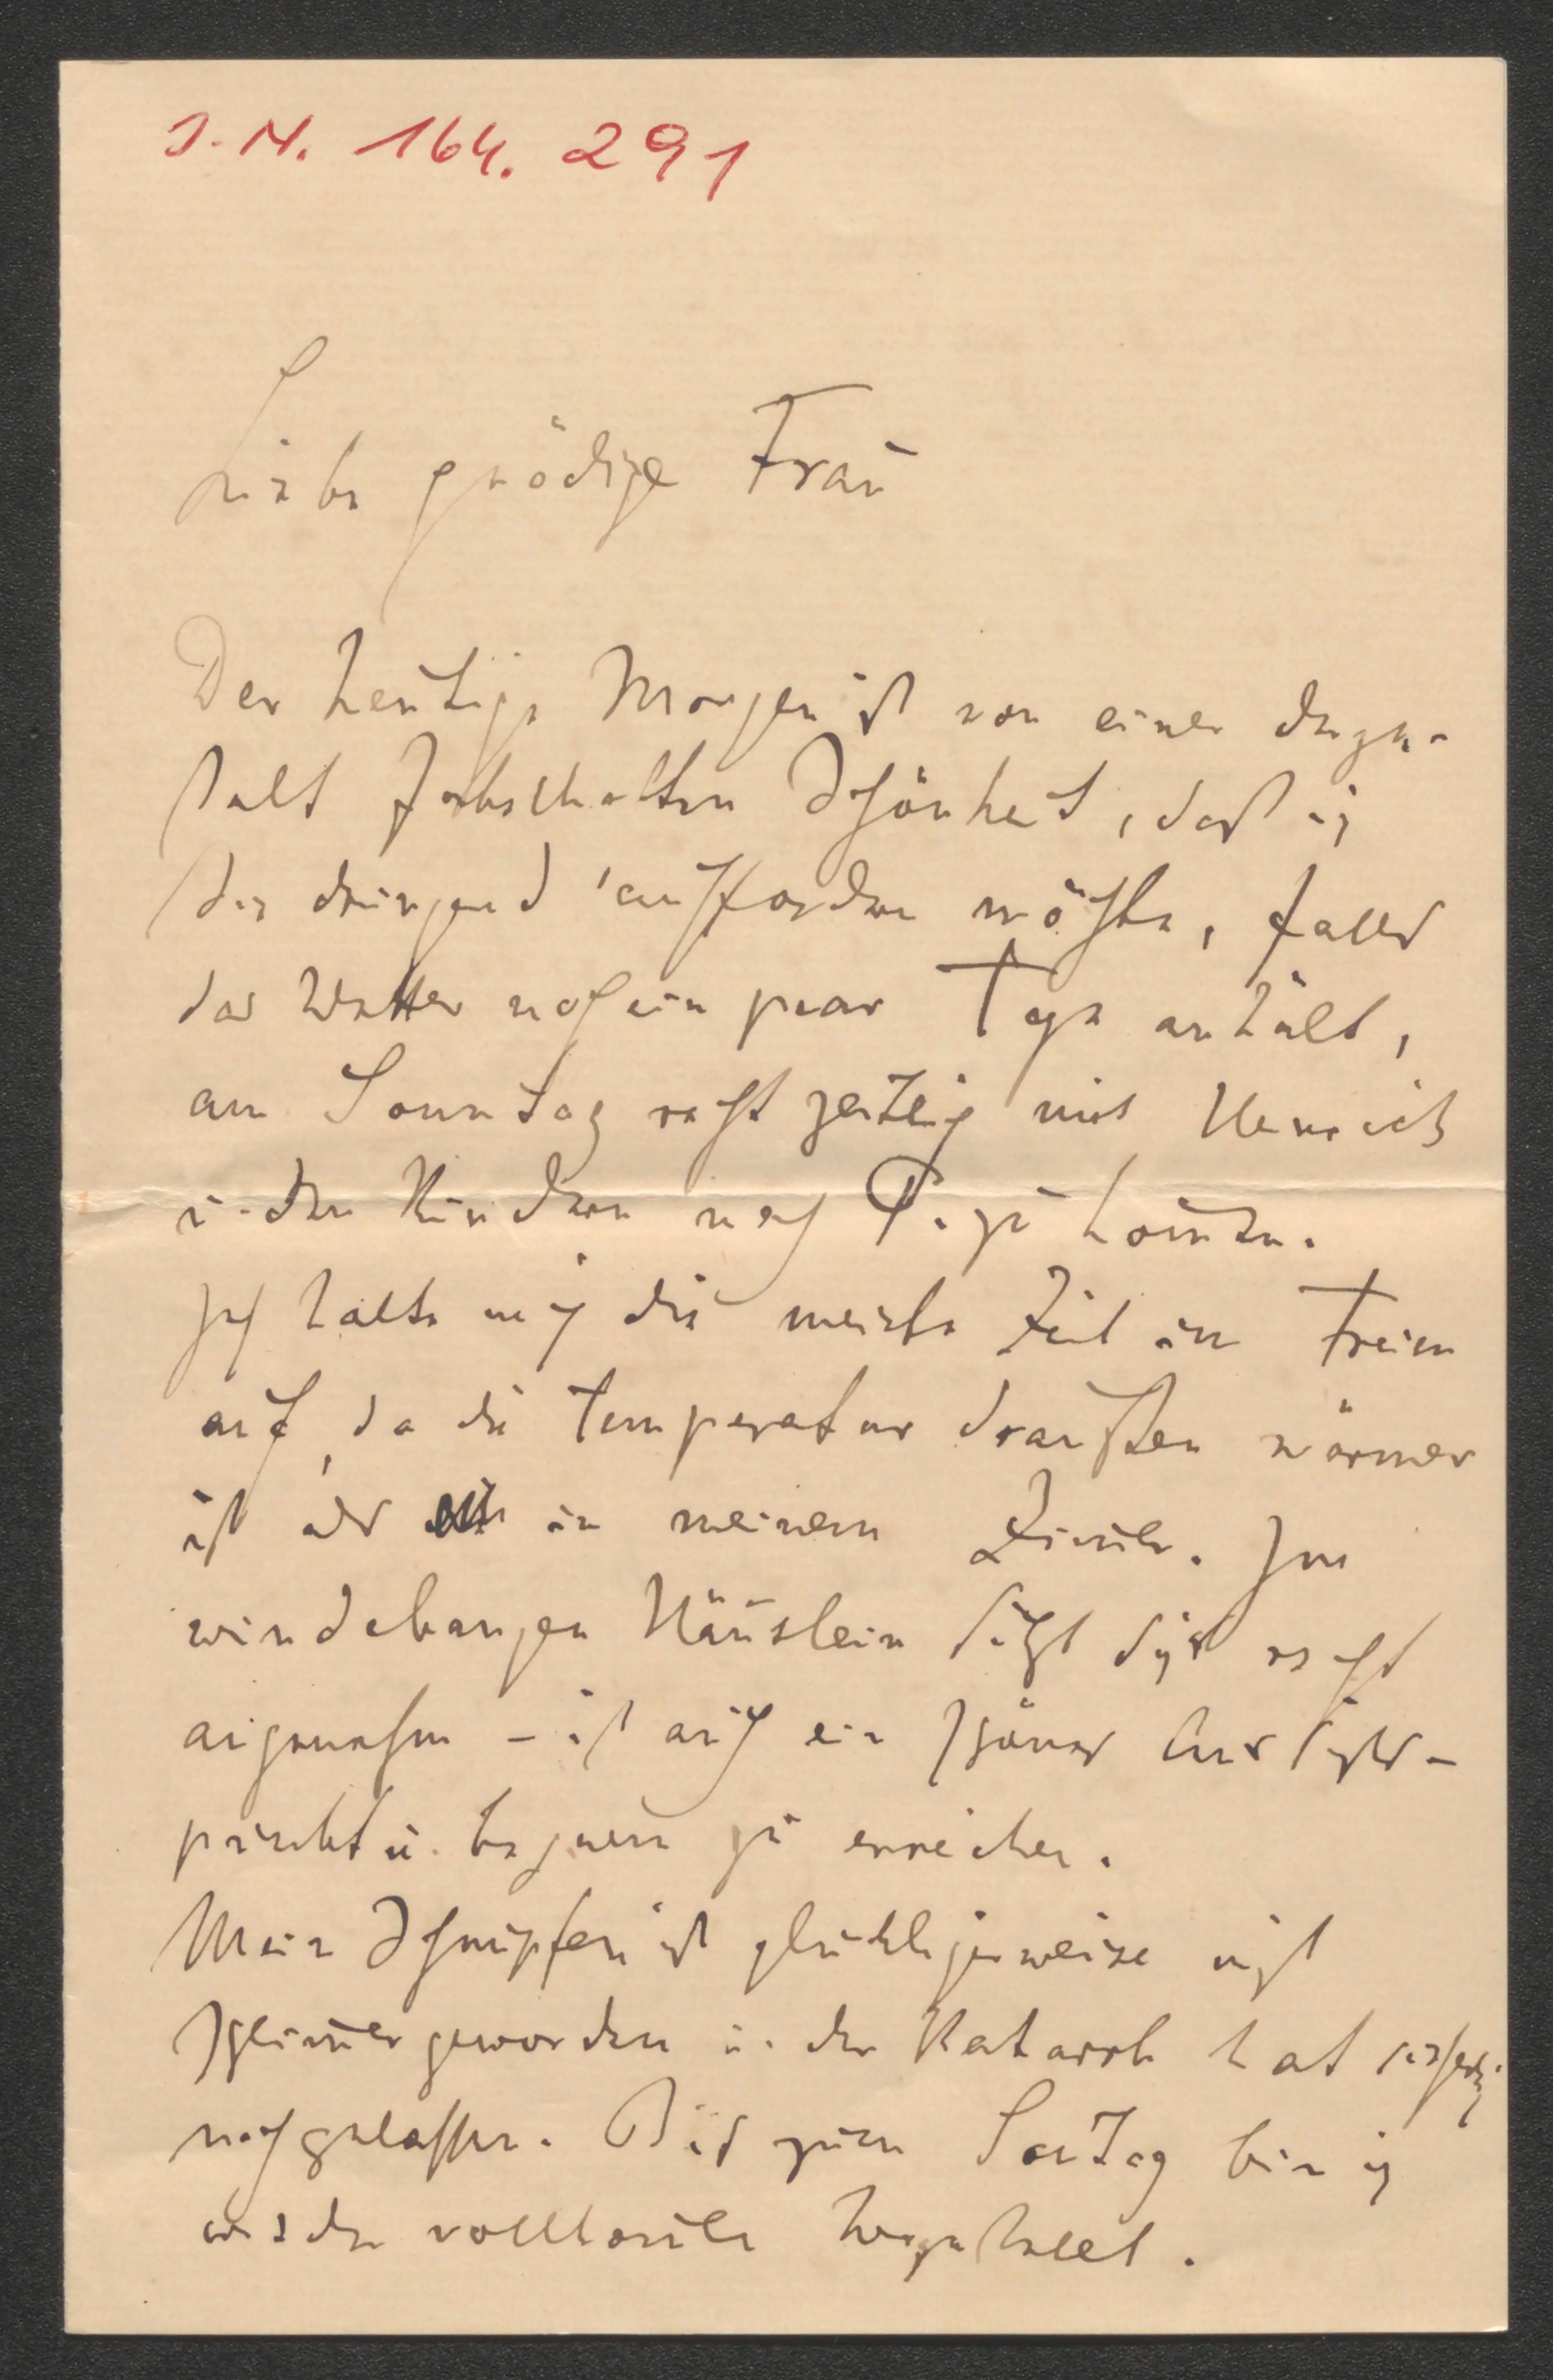 J. N. 164. 291
Liebe gnädige Frau
Der heutige Morgen ist von einer derge-
stalt fabelhaften Schönheit, daß ich
Sie dringend auffordern möchte, falls
das Wetter noch ein paar Tage anhält,
am Sonntag recht zeitig mit Heinrich
u. den Kindern nach P. zu kom̄en.
Ich halte mich die meiste Zeit im Freien
auf, da die Temperatur draußen wärmer
ist als in meinem Zim̄er. Im
Häuslein sitzt sichs recht
angenehm – ist auch ein schöner Aussichts-
punkt u. bequem zu erreichen.
Mein Schnupfen ist glücklicherweise nicht
schlim̄er geworden u. der Katarrh hat
nachgelassen. Bis zum Son̄tag bin ich
wieder vollkom̄en hergestellt.